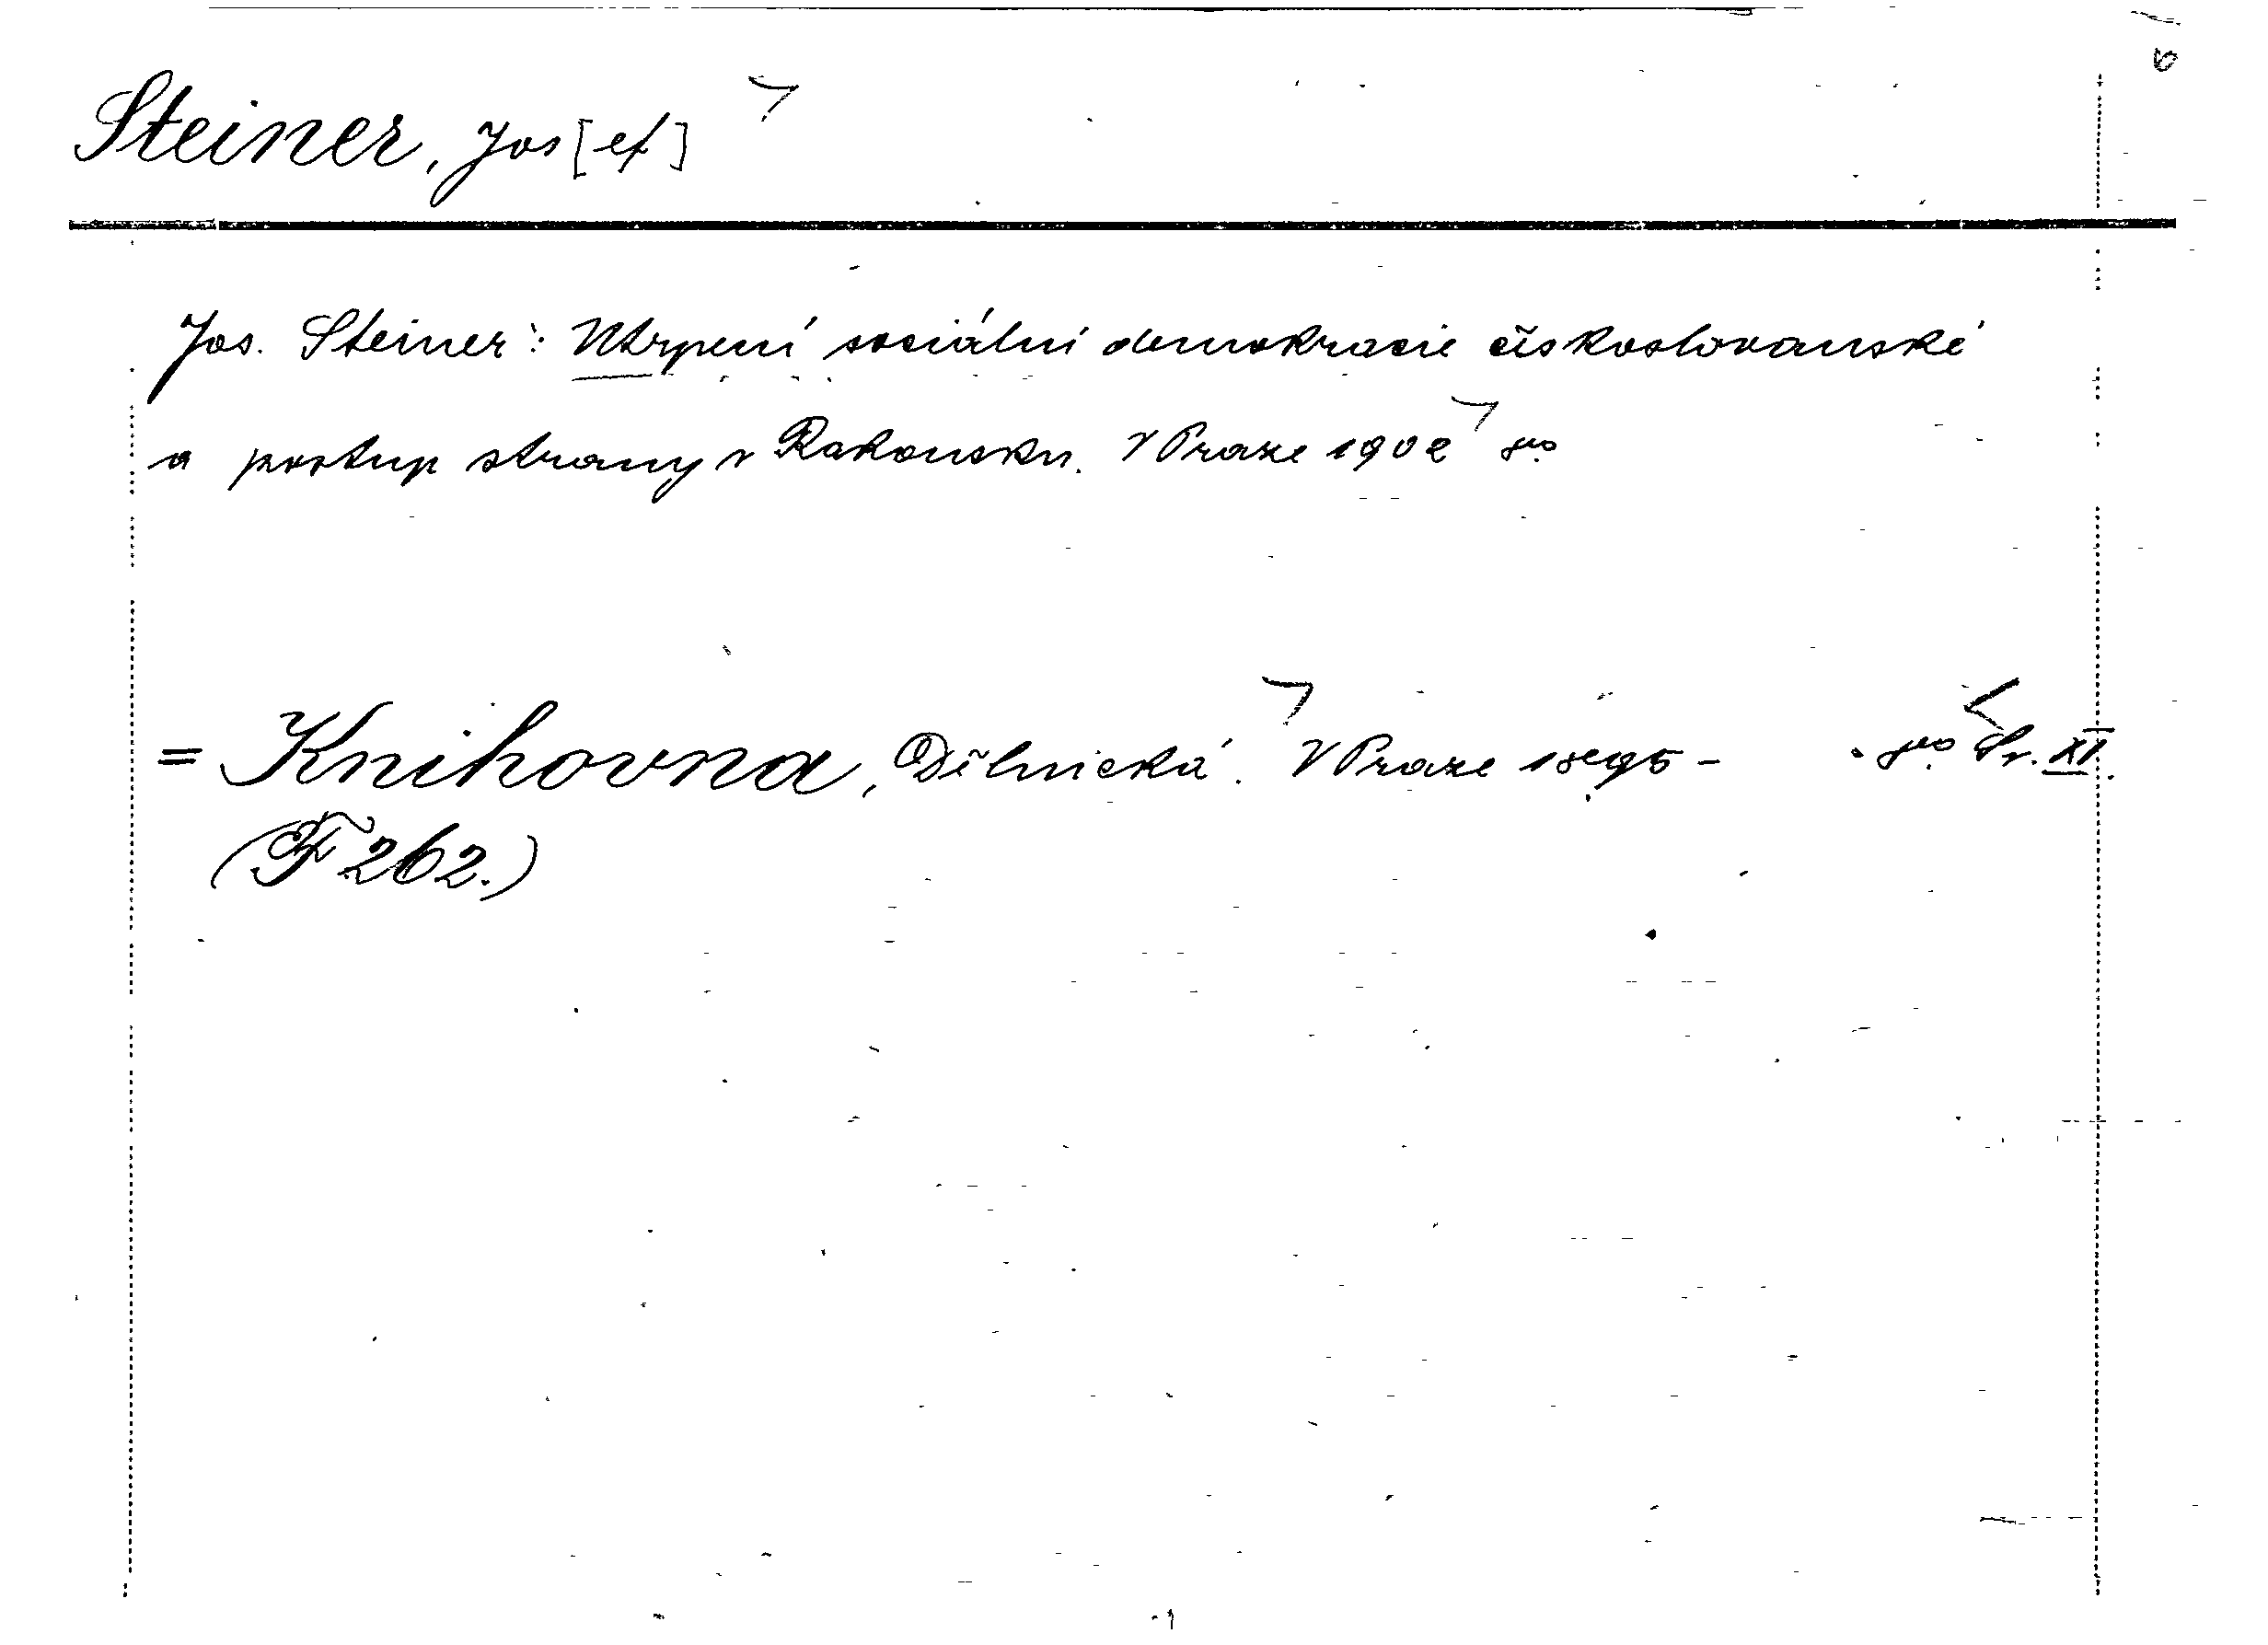 Steiner, Jos[ef]
Jos. Steiner: Utrpení sociální demokracie českoslovanské
a postup strany v Rakousku. V Praze 1902 8°
= Knihovna, Dělnická. V Praze 1895- . 8° Sv. XI.
(F 262.)